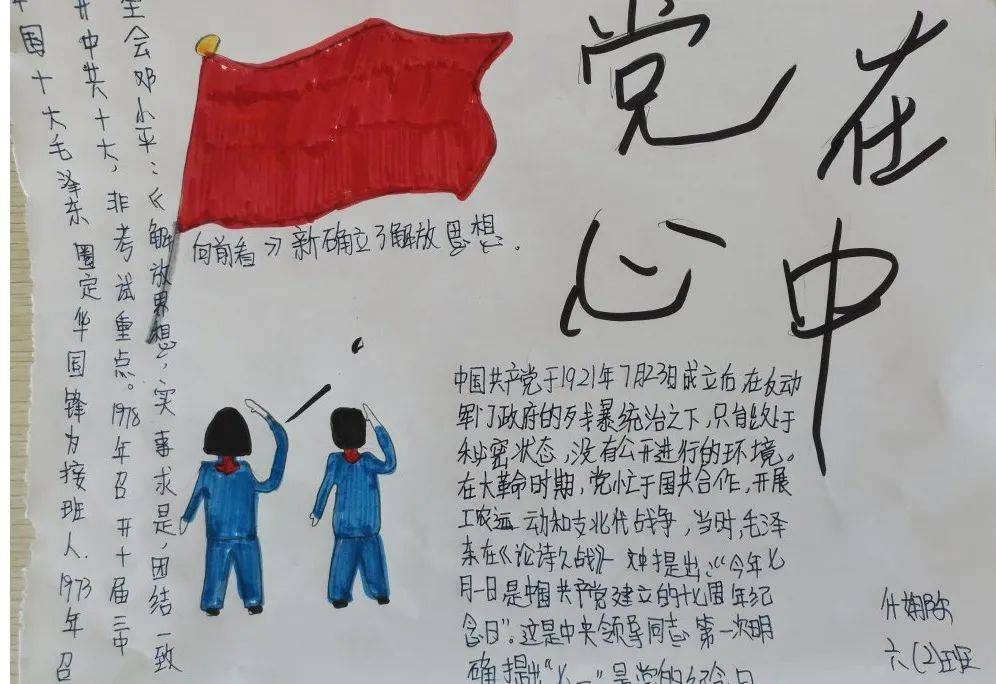 党在
心中
国十大毛泽东 圈定华国锋为接班人.1973年召
开中共十大,非考试重点。1978年召开十届三中
全会邓小平:《解放思想,实事求是,团结一致
向前看》新确立了解放思想.
中国共产党于1921年7月23日成立后在反动
军门政府的残暴统治之下,只能处于
秘密状态,没有公开进行的环境。
在大革命时期,党忙于国共合作,开展
工农运动和支北代战争,当时,毛泽
东在《论持久战》一文中提出:“今年七
月一日是中国共产党建立的十七周年纪
念日”。这是中央领导同志第一次明
确提出“七一”是党的纪念日
六(2)班